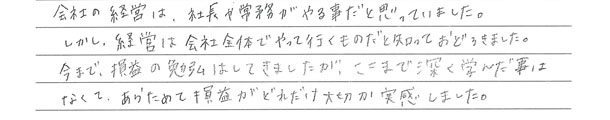 会社の経営は、社長や常務がやる事だと思っていました。
しかし、経営は会社全体でやって行くものだと知っておどろきました。
今まで、損益の勉強はしてきましたが、ここまで深く学んだ事は
なくて、あらためて損益がどれだけ大切か実感しました。